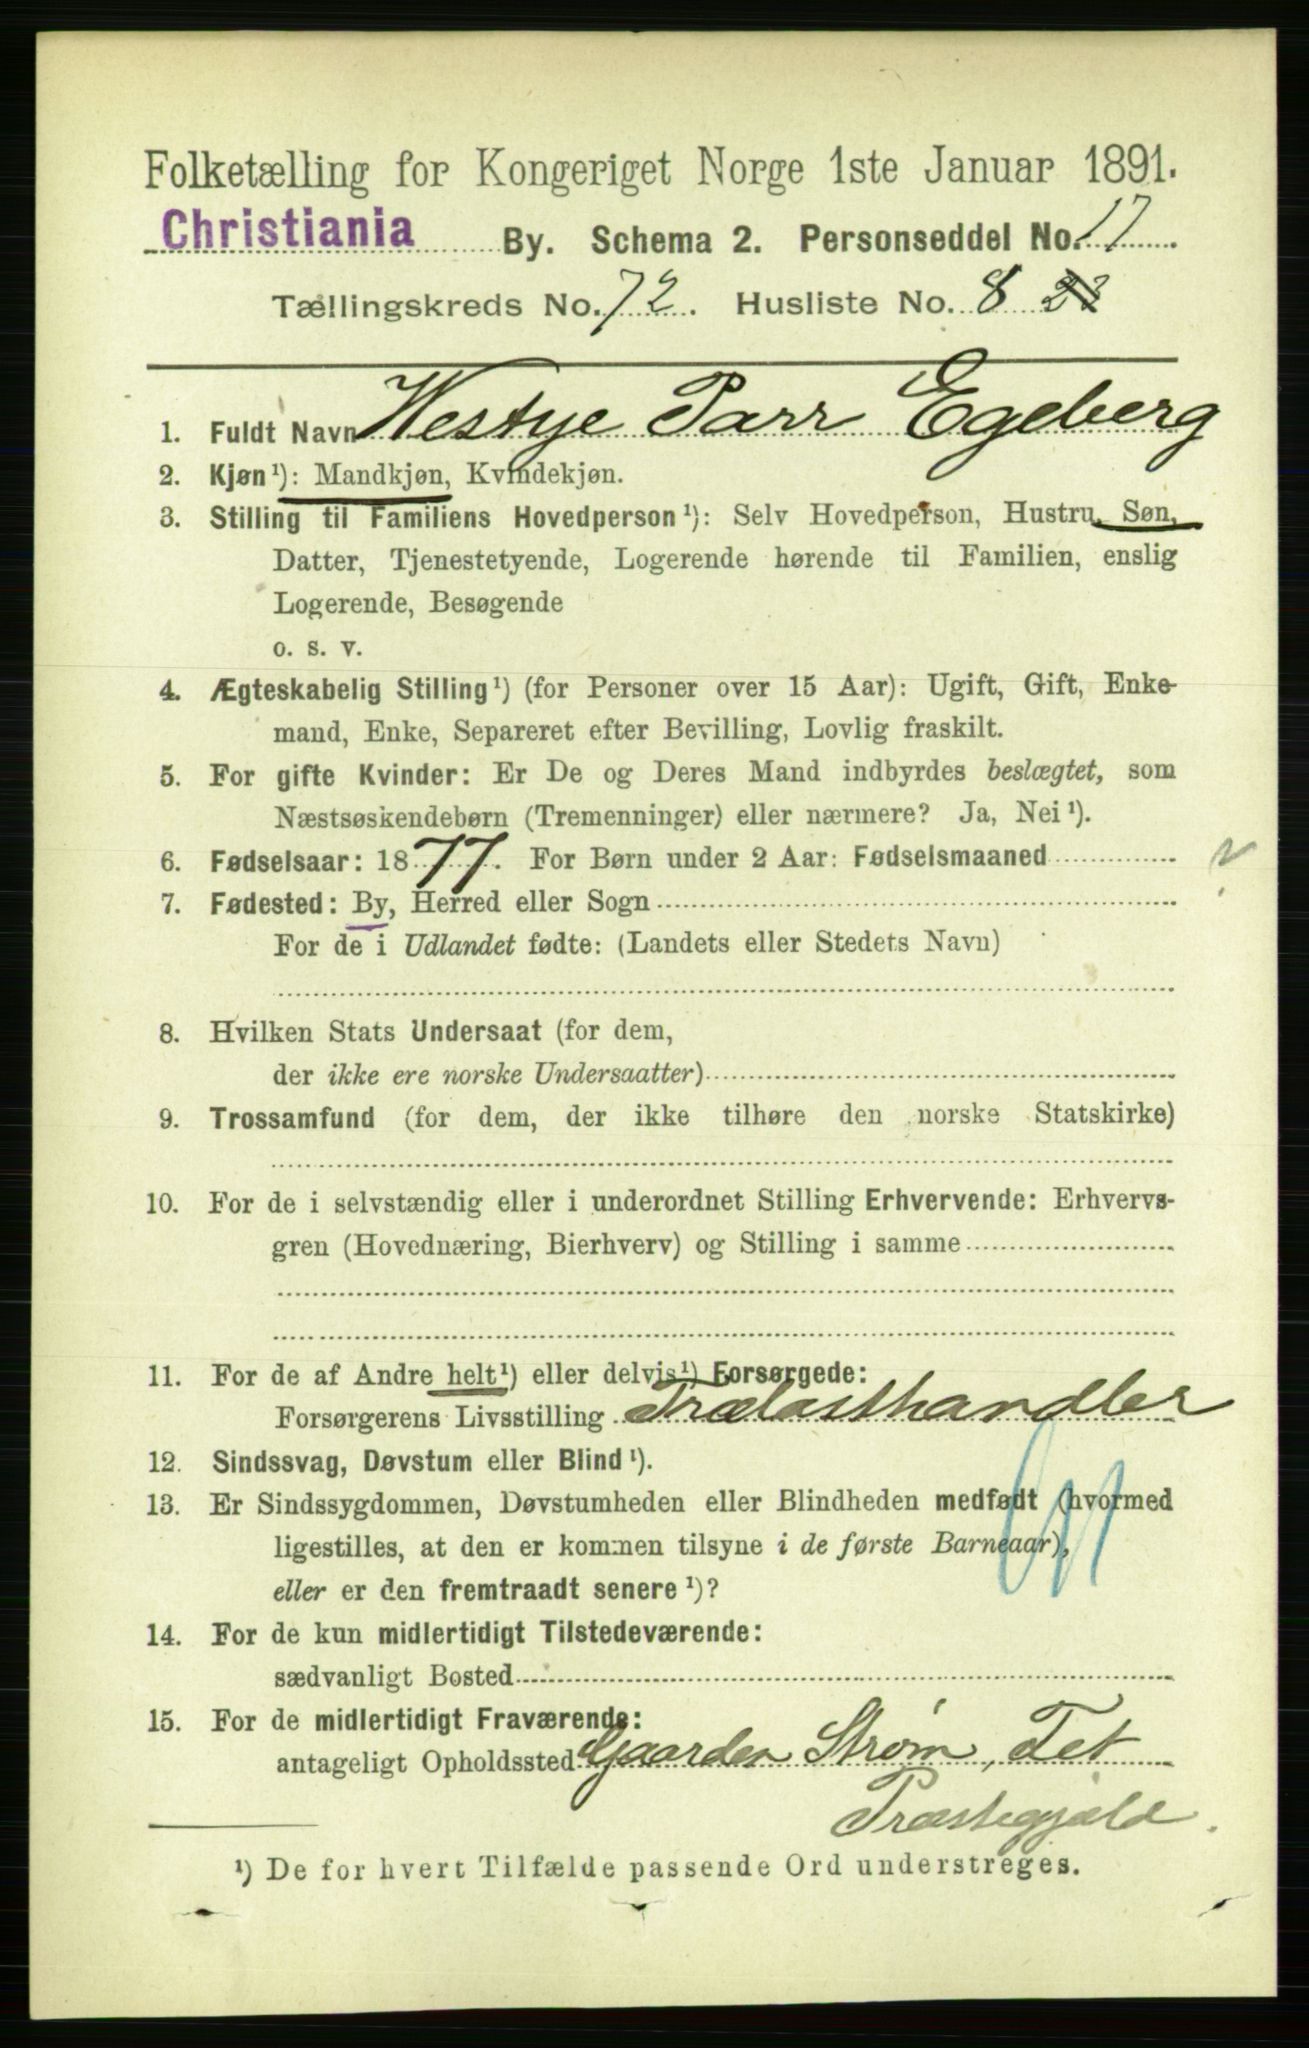 Folketælling for Kongeriget Norge 1ste Januar 1891.
Christiania By. Schema 2. Personseddel No. 17
Tællingskreds No. 72. Husliste No. 8
1. Fuldt Navn Westye Parr Egeberg
2. Kjøn¹): Mandkjøn, Kvindekjøn.
3. Stilling til Familiens Hovedperson¹): Selv Hovedperson, Hustru, Søn,
Datter, Tjenestetyende, Logerende hørende til Familien, enslig
Logerende, Besøgende
o. s. v.
4. Ægteskabelig Stilling¹) (for Personer over 15 Aar): Ugift, Gift, Enke-
mand, Enke, Separeret efter Bevilling, Lovlig fraskilt.
5. For gifte Kvinder: Er De og Deres Mand indbyrdes beslægtet, som
Næstsøskendebørn (Tremenninger) eller nærmere? Ja, Nei¹).
6. Fødselsaar: 1877. For Børn under 2 Aar: Fødselsmaaned
7. Fødested: By, Herred eller Sogn
For de i Udlandet fødte: (Landets eller Stedets Navn)
8. Hvilken Stats Undersaat (for dem,
der ikke ere norske Undersaatter)
9. Trossamfund (for dem, der ikke tilhøre den norske Statskirke)
10. For de i selvstændig eller i underordnet Stilling Erhvervende: Erhvervs-
gren (Hovednæring, Bierhverv) og Stilling i samme
11. For de af Andre helt¹) eller delvis¹) Forsørgede:
Forsørgerens Livsstilling Trælasthandler
12. Sindssvag, Døvstum eller Blind¹).
13. Er Sindssygdommen, Døvstumheden eller Blindheden medfødt (hvormed
ligestilles, at den er kommen tilsyne i de første Barneaar),
eller er den fremtraadt senere¹)?
14. For de kun midlertidigt Tilstedeværende:
sædvanligt Bosted
15. For de midlertidigt Fraværende:
antageligt Opholdssted Gaarden Strøm, Fet
Præstegjæld.
¹) De for hvert Tilfælde passende Ord understreges.